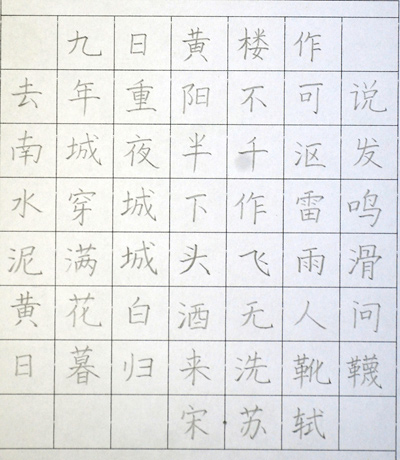 九日黄楼作
去年重阳不可说
南城夜半千沤发
水穿城下作雷鸣
泥满城头飞雨滑
黄花白酒无人问
日暮归来洗靴韈
宋·苏轼